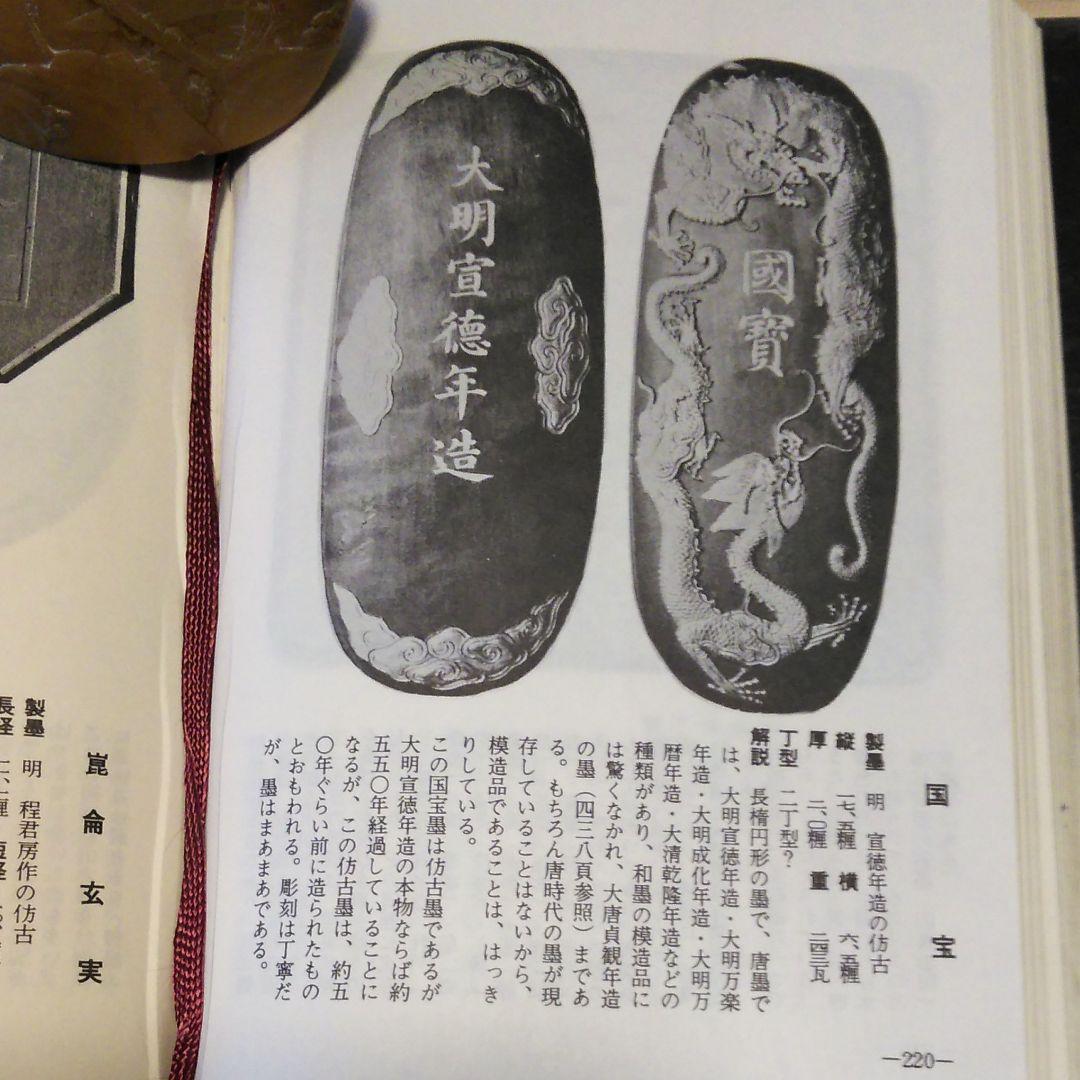 國寶
大明宣德年造
国宝
製墨 明 宣徳年造の仿古
縦 一七、五糎 横 六、五糎
厚 二、〇糎 重 二四三瓦
丁型 二丁型?
解説 長楕円形の墨で、唐墨で
は、大明宣徳年造・大明万楽
年造・大明成化年造・大明万
暦年造・大清乾隆年造などの
種類があり、和墨の模造品に
は驚くなかれ、大唐貞観年造
の墨(四三八頁参照)まであ
る。もちろん唐時代の墨が現
存していることはないから、
模造品であることは、はっき
りしている。
この国宝墨は仿古墨であるが
大明宣徳年造の本物ならば約
五五〇年経過していることに
なるが、この仿古墨は、約五
〇年ぐらい前に造られたもの
とおもわれる。彫刻は丁寧だ
が、墨はまあまあである。
—220—
崑崙玄実
製墨 明 程君房作の仿古
長径